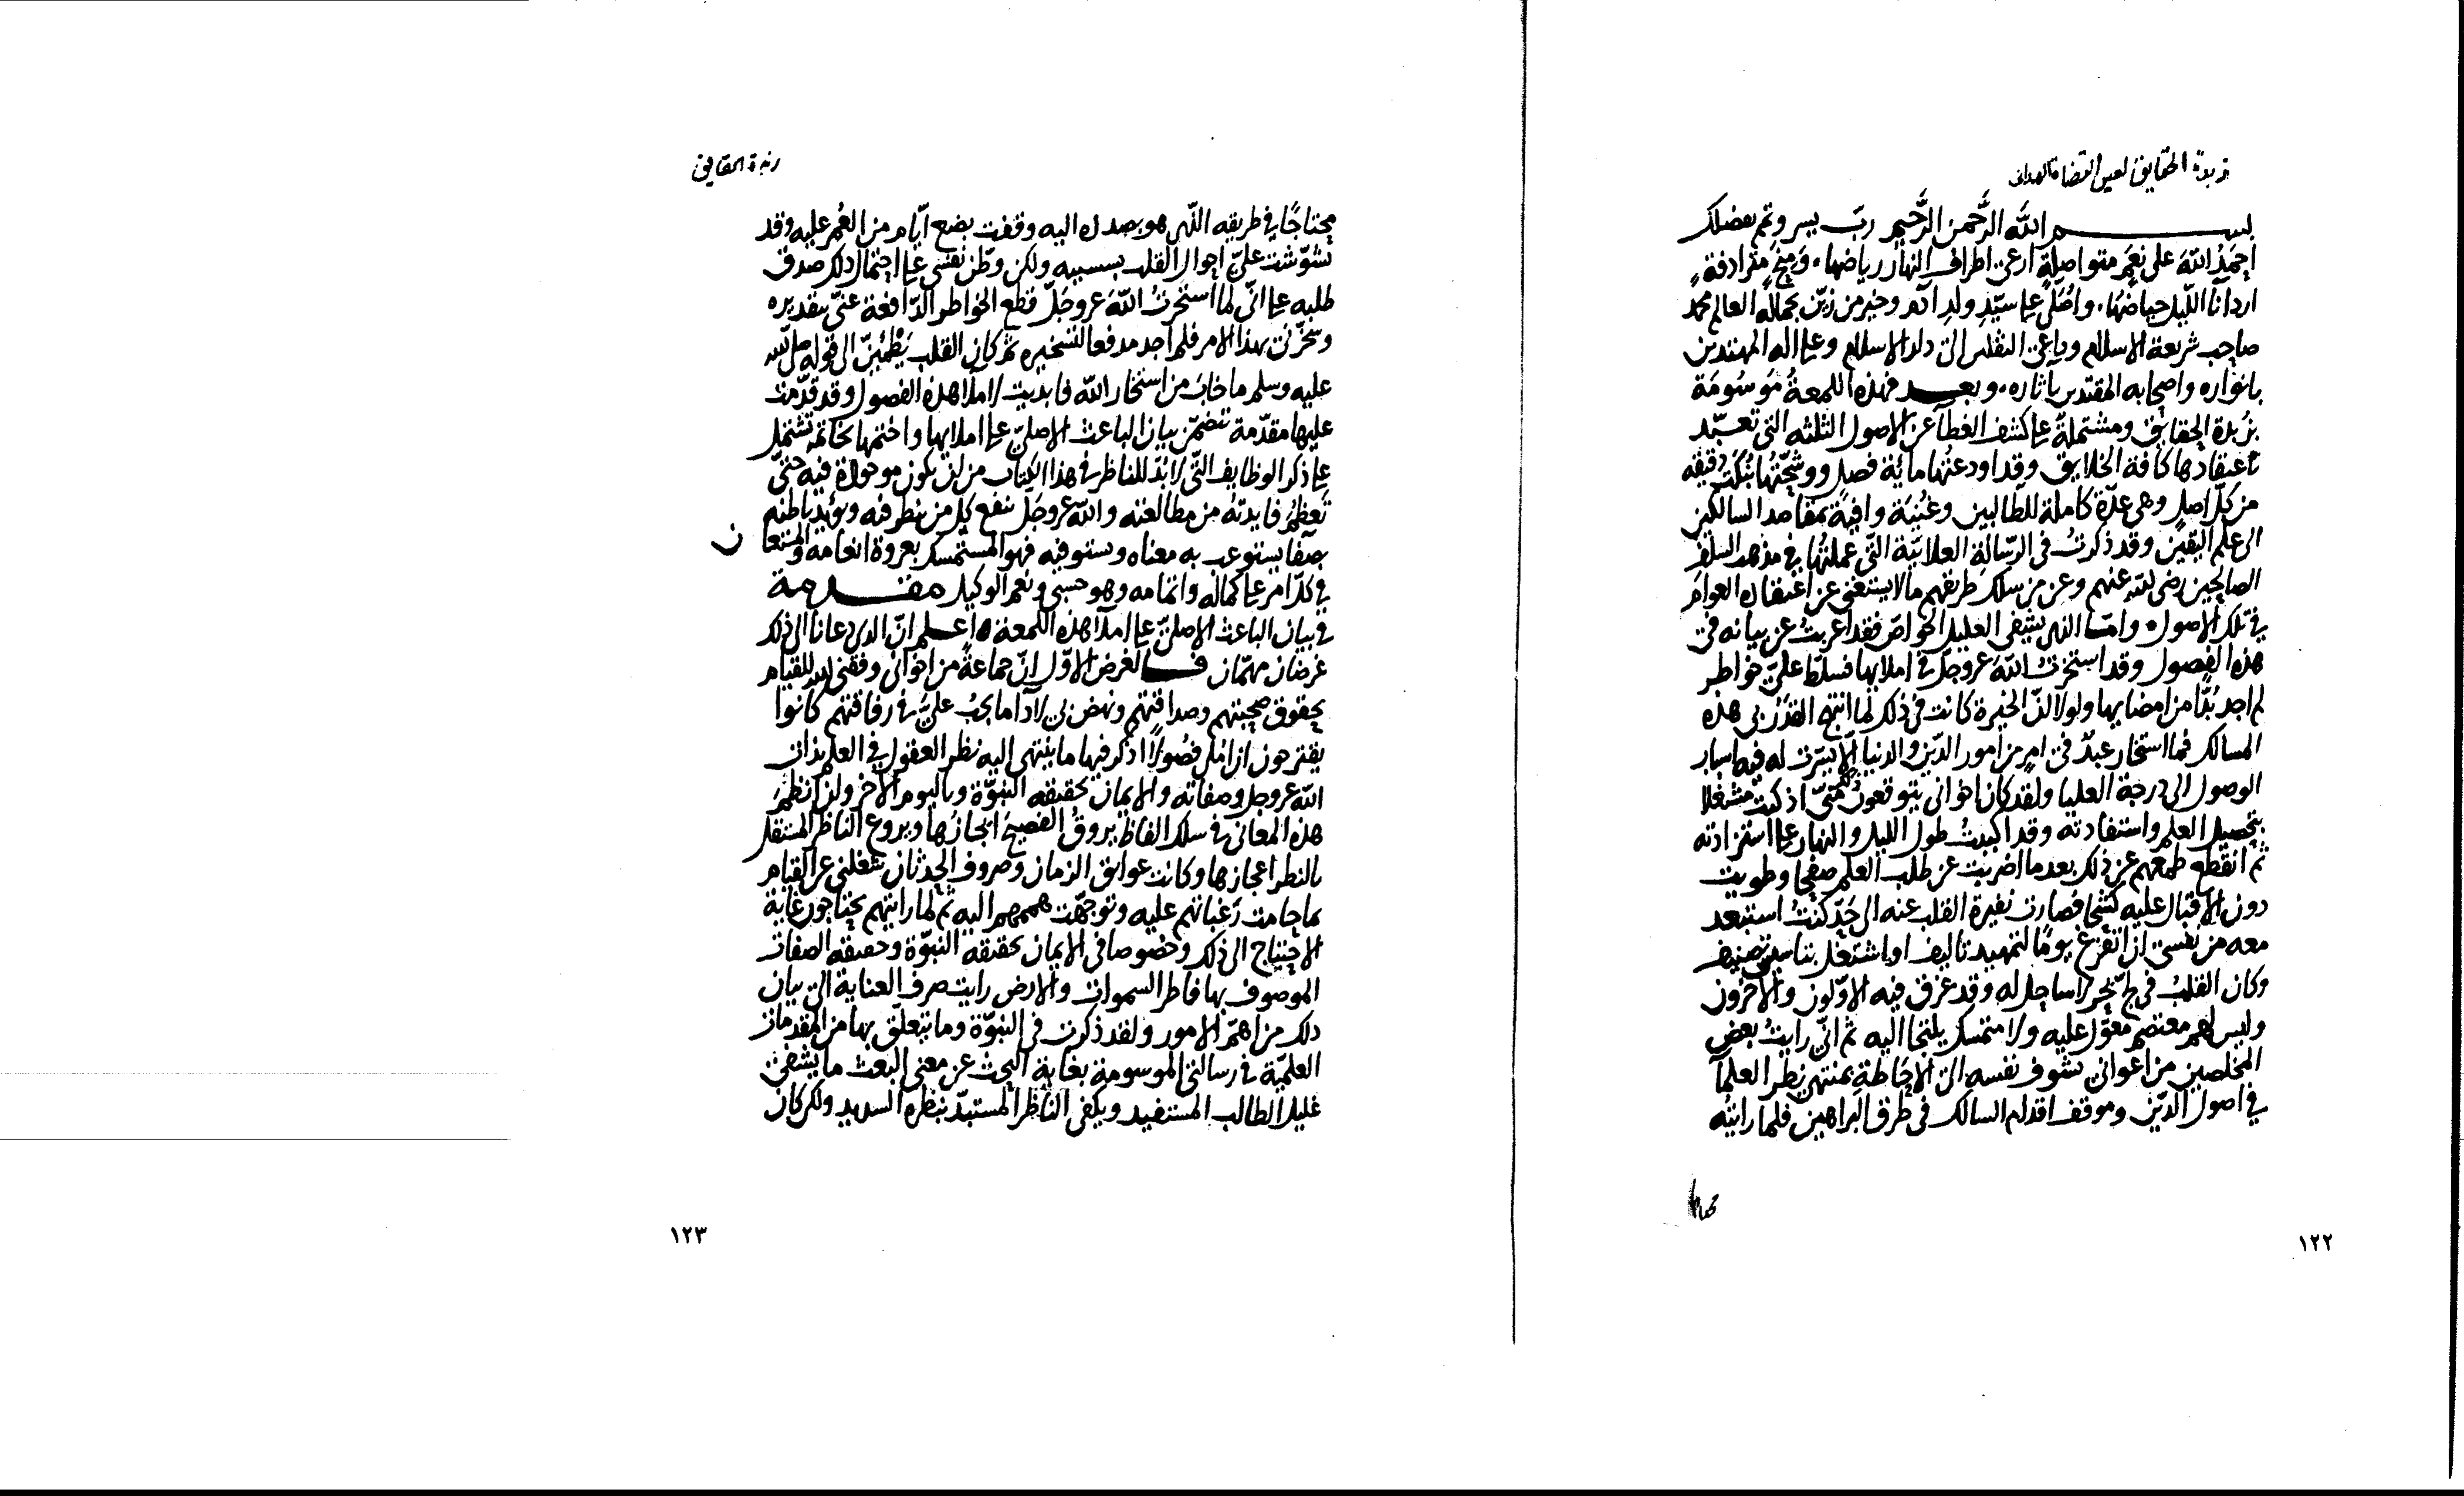 زبدة الحقايق لعين القضاة الهمدانى
بسم الله الرَّحمن الرَّحيم ربّ يسر وتمم بفضلك
احمدُ اللهَ على نِعَمٍ متواصلةٍ ارعى اطراف النهار رياضها، ومِنَحٍ مترادفةٍ
ارد آناء اللّيل حياضها، واصلّى على سيّد ولد آدم وخير من زيّن بجماله العالم محمد
صاحب شريعة الاسلام وداعى الثقلين الى دار الاسلام وعلى اله المهتدين
بانواره واصحابه المقتدين بآثاره، وبعد فهذه اللمعةُ موسُومَة
بزُبدة الحقايق ومشتملة على كشف الغطآ عن الاصول الثلثه التى تعبّد
باعتقادها كافة الخلايق وقد اودعتُها ماية فصل ووشّحتُها بنُكَت دقيقه
من كلّ اصل وهى عدّة كاملة للطالبين وغُنيَة وافية بمقاصد السالكين
الى علم اليقين وقد ذكرتُ فى الرّسالة العلائيّة التى عملتُها فى مذهب السلف
الصالحين رضى الله عنهم وعن من سلك طريقهم ما لا يستغنى عن اعتقاده العوام
فى تلك الاصول وامّا الذى يشفى الغليل الخواص فقد اعربتُ عن بيانه فى
هذه الفصول وقد استخرتُ الله عزوجلّ فى املايها فسلّط علىّ خواطر
لم اجد بُدّا من امضايها ولولا انّ الخيرة كانت فى ذلك لما انتهى القدَرُ بى هذه
المسالك فما استخار عبدٌ فى امر من امور الدّين والدنيا الّا يتيسّرت له فيه اسباب
الوصول الى درجة العليا ولقد كان اخوانى يتوقعون منّى اذ كنت مشتغلا
بتحصيل العلم واستفادته وقد اكببتُ طول الليل والنهار على استزادته
ثم انقطع طمعهم عن ذلك بعد ما اضربت عن طلب العلم صفحا وطويت
دون الاقبال عليه كشحا فصارت نفرة القلب عنه الى حَدّ كنتُ استبعد
معه من نفسى ان اتفرّغ يومًا لتمهيد تاليف او اشتغل بتاسيس تصنيف
وكان القلبُ فى لجّ بحر لا ساحل له وقد غرق فيه الاوّلون والآخرون
وليس لهم معتصم معوّل عليه ولا متمسك يلتجا اليه ثم انّى رايتُ بعض
المخلصين من اعوانى تشوف نفسه الى الاحاطة بمنتهى نظر العلمآ
فى اصول الدّين وموقف اقدام السالك فى طرق البراهين فلما رايته
محتاجا
١٢٢
زبدة الحقايق
محتاجًا فى طريقه الذى هو بصدده اليه وقفت بضع ايّام من العُمر عليه وقد
تشوّشت علىّ احوال القلب بسببه ولكن وطّن نفسى على احتمال ذلك صدق
طلبه على انّى لما استخرتُ الله عزوجلّ قطع الخواطر الدّافعة عنّى بتقديره
وسخّرنى بهذا الامر فلم اجد مدفعا لتسخيره ثم كان القلب يَطمئِنّ الى قوله صلى الله
عليه وسلم ما خاب من استخار الله فابديت املا هذه الفصول وقد قدّمت
عليها مقدّمة تتضمّن بيان الباعث الاصلىّ على املايها واختمها بخاتمة تشتمل
على ذكر الوظايف التى لا بدّ للناظر فى هذا الكتاب من ان يكون موجودة فيه حتّى
تَعظُمَ فايدتُه من مطالعته والله عزوجل ينفع كل من ينظر فيه ويؤيد باطنه
بصفا يستوعب به معناه ويستوفيه فهو المستمسك بعروة انعامه والمستعان
فى كلّ امر على كماله واتمامه وهو حسبى ونعم الوكيل مقدمة
فى بيان الباعث الاصلىّ على املآ هذه اللمعة اعلم انّ الذى دعانا الى ذلك
غرضان مهمّان فالغرض الاوّل انّ جماعةً من اخوانى وفقنى الله للقيام
بحقوق صحبتهم وصداقتهم ونهض بى لادا ما يجبُ علىّ فى رفاقتهم كانوا
يقترحون ان املى فصُولًا اذكر فيها ما ينتهى اليه نظر العقول فى العلم بذات
الله عزوجل وصفاته والايمان بحقيقه النبوّة وباليوم الآخر ولن انظمَ
هذه المعانى فى سلك الفاظ يروقُ الفصيحَ ايجازُها ويروع الناظر المستقل
بالنظر اعجازها وكانت عوايق الزمان وصروف الحدثان تشغلنى عن القيام
بما حامت رَغباتهم عليه وتوجّهت هممهم اليه ثم لما رايتهم يحتاجون غاية
الاحتياج الى ذلك وخصوصا فى الايمان بحقيقه النبوّة وحقيقه الصفات
الموصوف بها فاطر السموات والارض رايت صرف العناية الى بيان
ذلك من اهمّ الامور ولقد ذكرت فى النبوّة وما يتعلّق بها من المقدمات
العلميّة فى رسالتى الموسومة بغاية البحث عن معنى البعث ما يشفى
غليل الطالب المستفيد ويكفى الناظر المستبدّ بنظره السديد ولكن كان
١٢٣